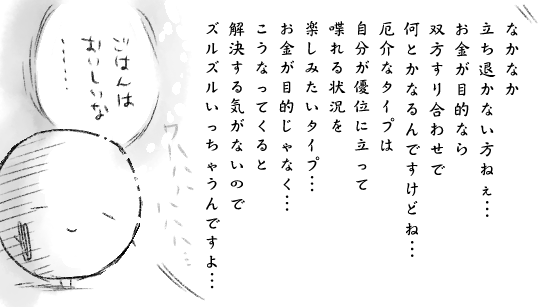 なかなか
立ち退かない方ねぇ…
お金が目的なら
双方すり合わせで
何とかなるんですけどね…
厄介なタイプは
自分が優位に立って
喋れる状況を
楽しみたいタイプ…
お金が目的じゃなく…
こうなってくると
解決する気がないので
ズルズルいっちゃうんですよ…
ごはんは
おいしいな
……